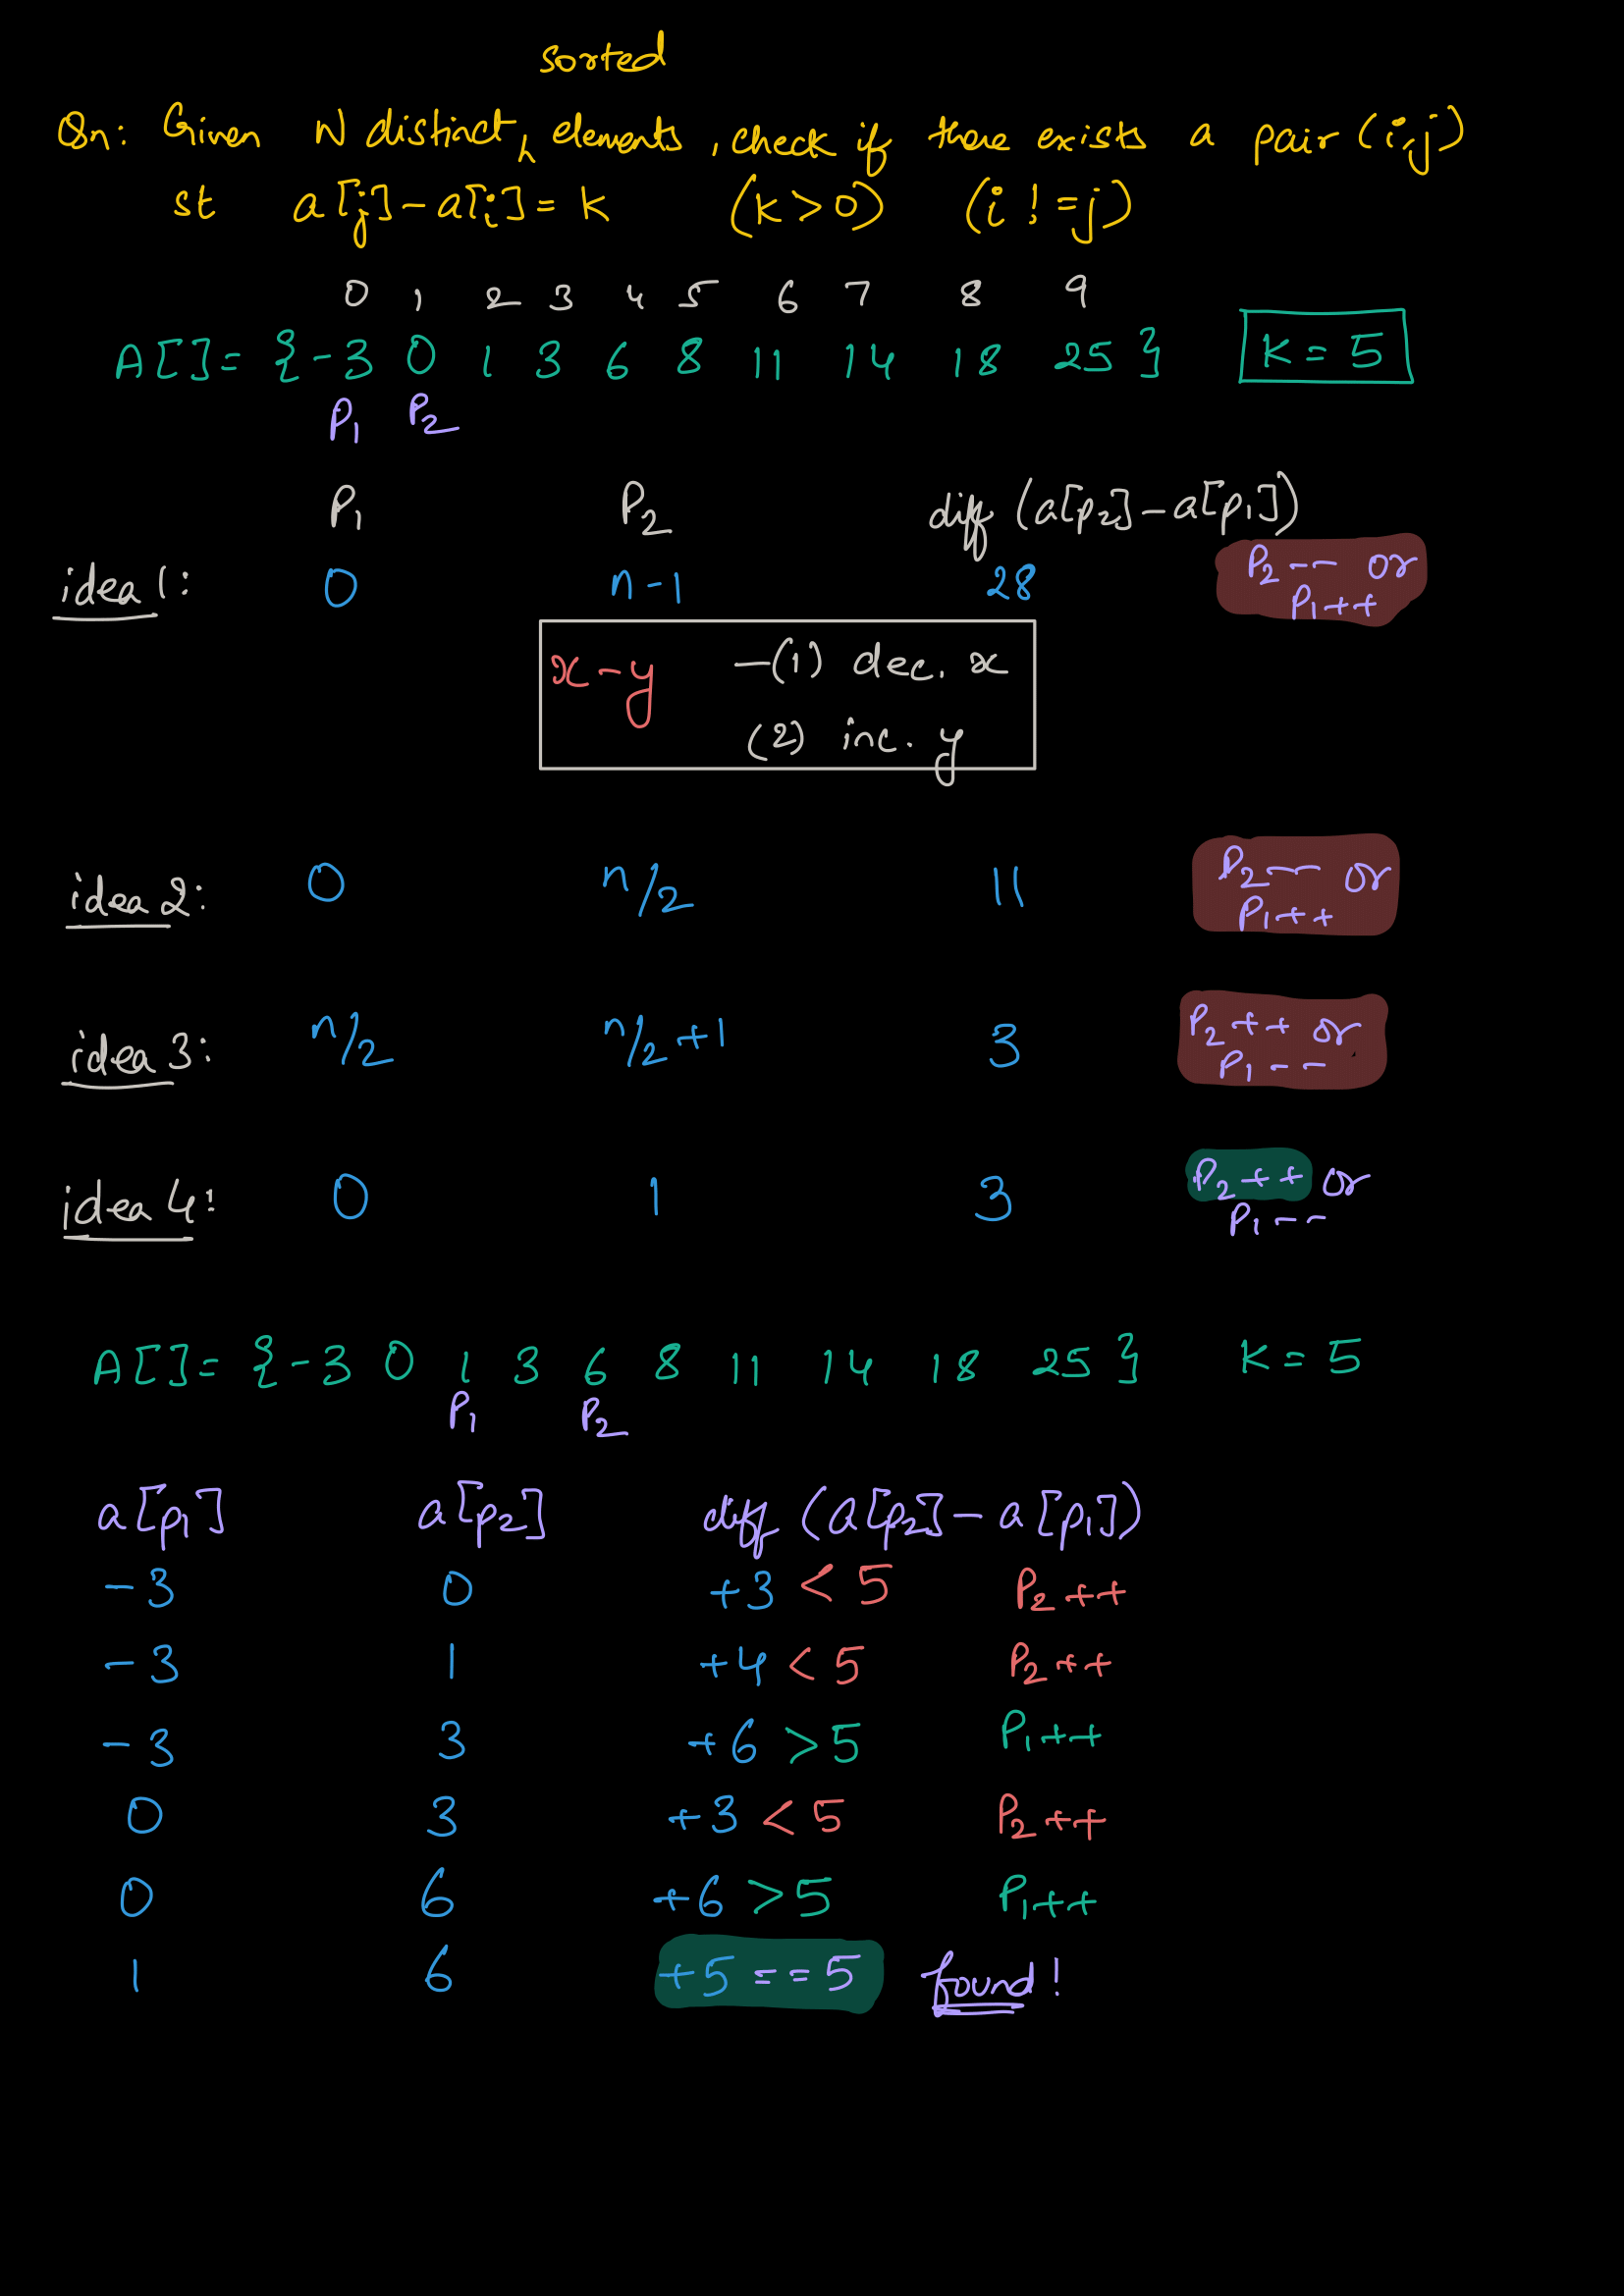 sorted
Qn: Given N distinct, elements, check if there exists a pair (i,j)
st a[j]-a[i]= k (k>0) (i!=j)
0 1 2 3 4 5 6 7 8 9
A[]= {-3 0 1 3 6 8 11 14 18 25 } K = 5
P1 P2
P1 P2 diff (a[p2]-a[p1])
idea 1: 0 n-1 28 P2-- or
P1++
x-y -(1) dec. x
(2) inc. y
idea 2: 0 n/2 11 P2-- or
P1++
idea 3: n/2 n/2+1 3 P2++ or
P1--
idea 4: 0 1 3 P2++ or
P1--
A[]= {-3 0 1 3 6 8 11 14 18 25 } K = 5
P1 P2
a[p1] a[p2] diff (a[p2]-a[p1])
-3 0 +3 < 5 P2++
-3 1 +4 < 5 P2++
-3 3 +6 >5 P1++
0 3 +3 < 5 P2++
0 6 +6 >5 P1++
1 6 +5 ==5 found!